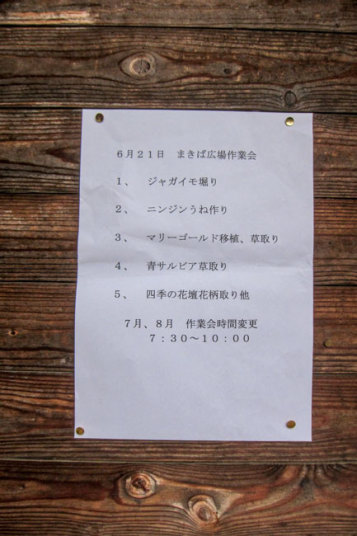 ６月２１日　まきば広場作業会
１、　ジャガイモ堀り
２、　ニンジンうね作り
３、　マリーゴールド移植、草取り
４、　青サルビア草取り
５、　四季の花壇花柄取り他
７月、８月　作業会時間変更
７：３０～１０：００